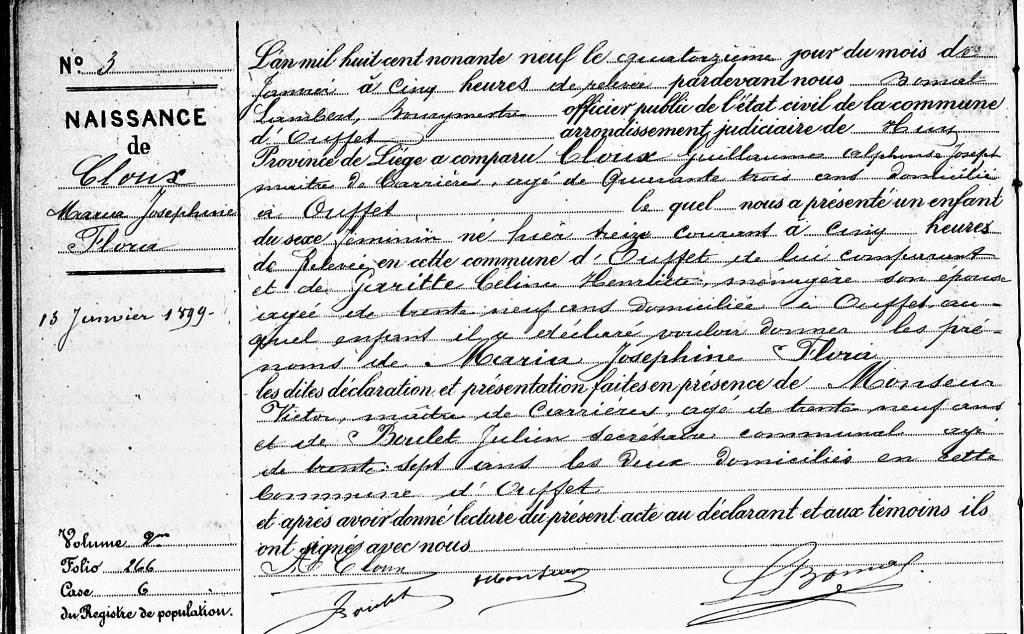 N° 3
NAISSANCE
de
Cloux
Maria Josephine
Flora
13 Janvier 1899-
Volume 2me
Folio 266
Case 6
du Registre de population.
L'an mil huit cent nonante neuf le quatorzième jour du mois de
Janvier à cinq heures de relevée pardevant nous Bonnal
Lambert, Bourgmestre officier public de l'état civil de la commune
d'Ouffet arrondissement judiciaire de Huy
Province de Liège a comparu Cloux Guillaume Alphonse Joseph
maître de Carrières, agé de quarante trois ans domicilié
à Ouffet le quel nous a présenté un enfant
du sexe féminin né hier treize courant à cinq heures
de Relevée en cette commune d'Ouffet, de lui comparant
et de Garitte Céline Henriette, ménagère son épouse
agée de trente neuf ans domiciliée à Ouffet, au-
quel enfant il a déclaré vouloir donner les pré-
noms de Maria Josephine Flora
les dites déclaration et présentation faites en présence de Monseur
Victor, maître de Carrières, agé de trente neuf ans
et de Boulet Julien secrétaire communal agé
de trente-sept ans les deux domiciliés en cette
Commune d'Ouffet
et après avoir donné lecture du présent acte au déclarant et aux témoins ils
ont signé avec nous
Cloux
Monseur
Boulet